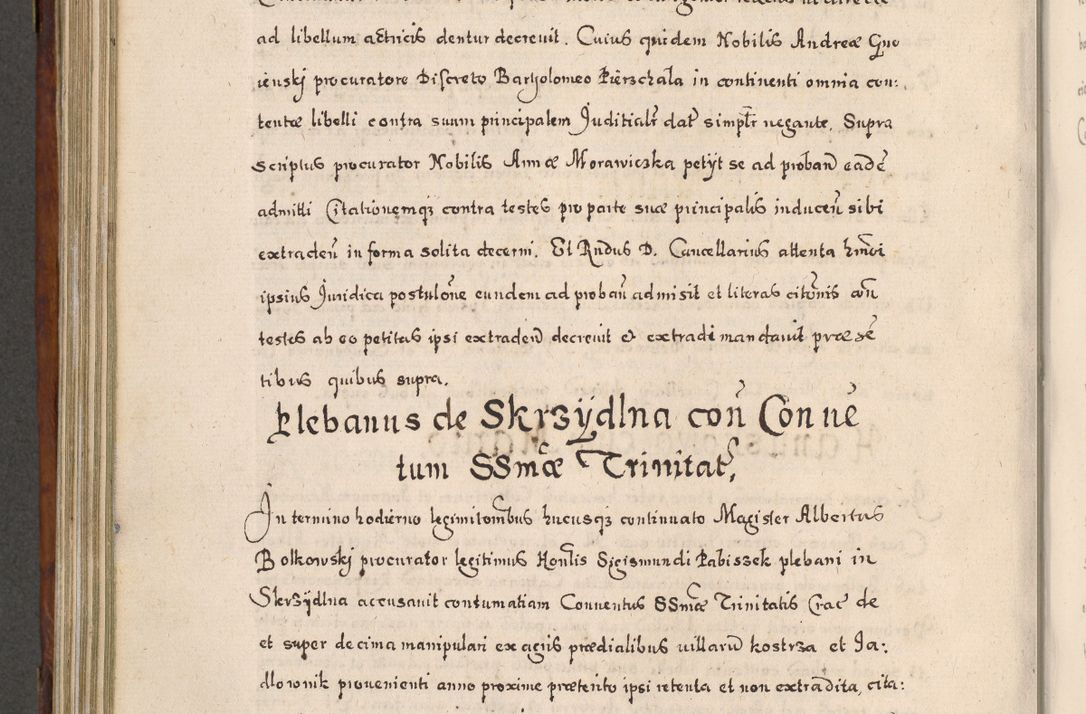 ad libellum actricis dentur decreuit. Cuius quidem Nobilis Andreæ Gno
ienskj procuratore Discreto Bartholomeo Pierzchała in continenti omnia con:
tentæ libelli contra suum principalem Juditialr̃ dat̃ simplr̃ negante. Supra
scriptus procurator Nobilis Annæ Morawiczka petÿt se ad proband̃ eadẽ
admitti Citationemqȝ contra testes pro parte suæ principalis inducen̄ sibi
extraden̄ in forma solita decerni. Et Rndus D. Cancellarius attenta hmōi
ipsius Juridica postulõne eundem ad proban̄ admisit et literas citõnis con̄
testes ab eo petitas ipsi extraden̄ decreuit et extradi mandauit præsẽ
tibus quibus supra.
Plebanus de Skrzÿdlna con̄ Conuẽ
tum SSmæ Trinitat̃,
In termino hodierno legimitombus hucusqȝ continuato Magister Albertus
Bolkowskj procurator legitimus Honlis Sigismundi Pabiszek plebani in
Skrzÿdlna accusauit contumatiam Conuentus SSmæ Trinitatis Crac̃ de
et super decima manipulari ex agris prædialibus uillarū kostrza et Ja:
dlownik prouenienti anno proxime præterito ipsi retenta et non extradita, cita: